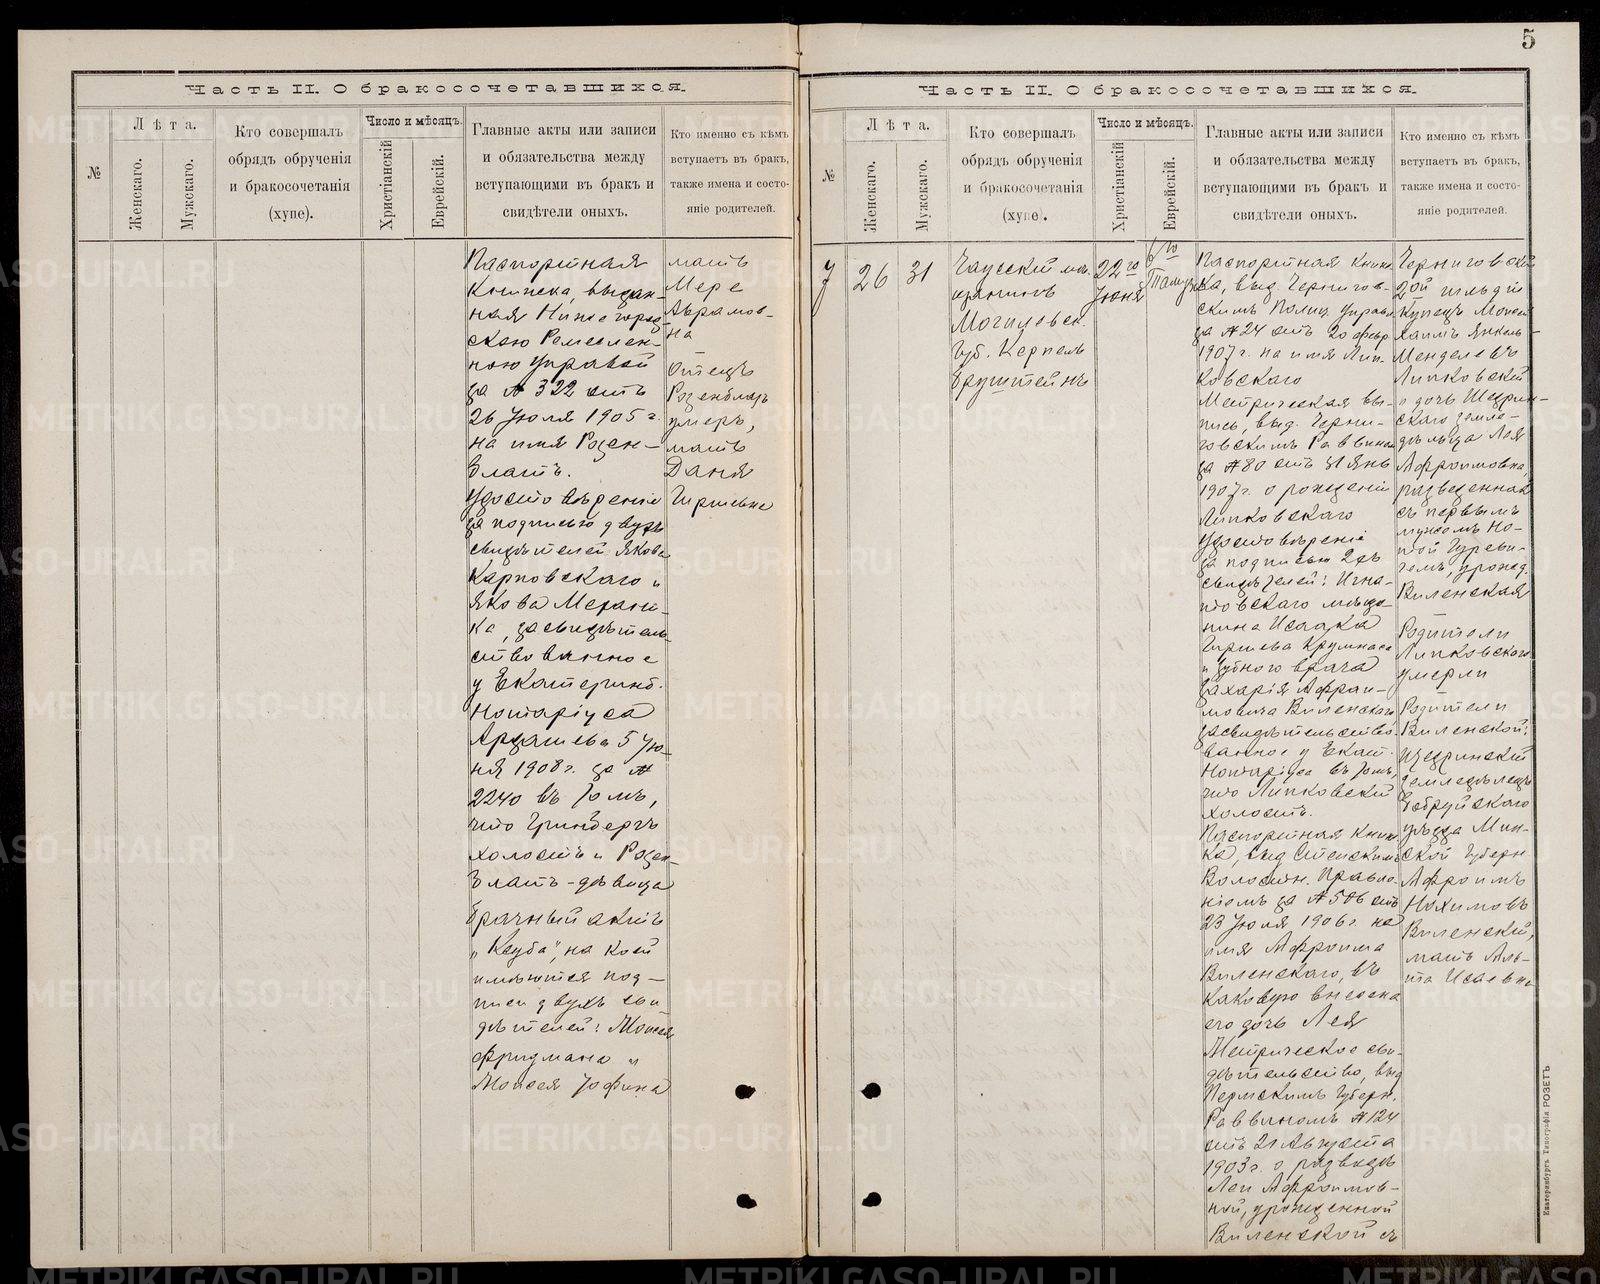 5
Часть II. О бракосочетавшихся.
№
Лѣта.
Женскаго.
Мужскаго.
Кто совершалъ
обрядъ обрученія
и бракосочетанія
(хупе).
Число и мѣсяцъ.
Христіанскій
Еврейскій.
Главные акты или записи
и обязательства между
вступающими въ бракъ и
свидѣтели оныхъ.
Кто именно съ кѣмъ
вступаетъ въ бракъ,
также имена и состо-
яніе родителей.
Паспортная
книжка, выдан-
ная Нижегород-
скою Ремеслен-
ною Управой
за № 322 отъ
26 Іюля 1905 г.
на имя Розен-
блатъ.
Удостовѣреніе
за подписью двухъ
свидѣтелей Якова
Карповскаго и
Якова Мерани-
ка, засвидѣтель-
ствованное
у Екатеринб.
Нотаріуса
Ардашева 5 Ію-
ня 1908 г. за №
2240 въ томъ,
что Гринбергъ
холостъ и Розен-
блатъ - дѣвица
Брачный актъ
"Кеуба", на коей
имѣются под-
писи двухъ сви
дѣтелей: Моисея
Фридмана и
Моисея Іофина
мать
Мере
Абрамов-
на
Отецъ
Розенблатъ
умеръ,
мать
Даня
Гиршевна
Часть II. О бракосочетавшихся.
№
Лѣта.
Женскаго.
Мужскаго.
Кто совершалъ
обрядъ обрученія
и бракосочетанія
(хупе).
Число и мѣсяцъ.
Христіанскій
Еврейскій.
Главные акты или записи
и обязательства между
вступающими въ бракъ и
свидѣтели оныхъ.
Кто именно съ кѣмъ
вступаетъ въ бракъ,
также имена и состо-
яніе родителей.
7
26
31
Чаусскій мѣ-
щанинъ
Могилевск.
Губ. Керпель
Бруштейнъ
22го
Іюня
Паспортная книж
ка, выд. Чернигов-
скимъ Полиц. Управл
за № 24 отъ 20 февр
1907 г. на имя Лип-
ковскаго
Метрическая вы-
пись, выд. Черни-
говскимъ Раввиномъ
за № 80 отъ 31 янв
1907 г. о рожденіи
Липковскаго
Удостовѣреніе
за подписью 2хъ
свидѣтелей: Игна-
товскаго мѣща-
нина Исаака
Гиршева Крумнаса
и зубного врача
Захарія Афрои-
мовича Виленскаго
засвидѣтельство-
ванное у Екат.
Нотаріуса въ томъ,
что Липковскій
холостъ.
Паспортная книж
ка, выд
Волостн. Правле-
ніемъ за № 506 отъ
23 Іюля 1906 г. на
имя Афроима
Виленскаго, въ
каковую внесена
его дочь Лея
Метрическое сви-
дѣтельство, выд
Пермскимъ Губерн.
Раввиномъ № 124
отъ 21 Августа
1903 г. о разводѣ
Леи Афроимов-
ной, урожденной
Виленской съ
Черниговскій
2ой гильдіи
купецъ
Хаимъ Янкель-
Менделевъ
Липковскій
и дочь Щедрин-
скаго земле-
дѣльца Лея
Афроимовна,
разведенная
съ первымъ
мужемъ Но-
той Гуреви-
чемъ, урожд.
Виленская
Родители
Липковскаго
умерли
Родители
Виленской:
Щедринскій
земледѣлецъ
Бобруйскаго
уѣзда Мин-
ской Губерн
Афроимъ
Нохимовъ
Виленскій,
мать Аль-
та Исаевна
Екатеринбургъ Типографія РОЗЕТЪ
METRIKI.GASO-URAL.RU